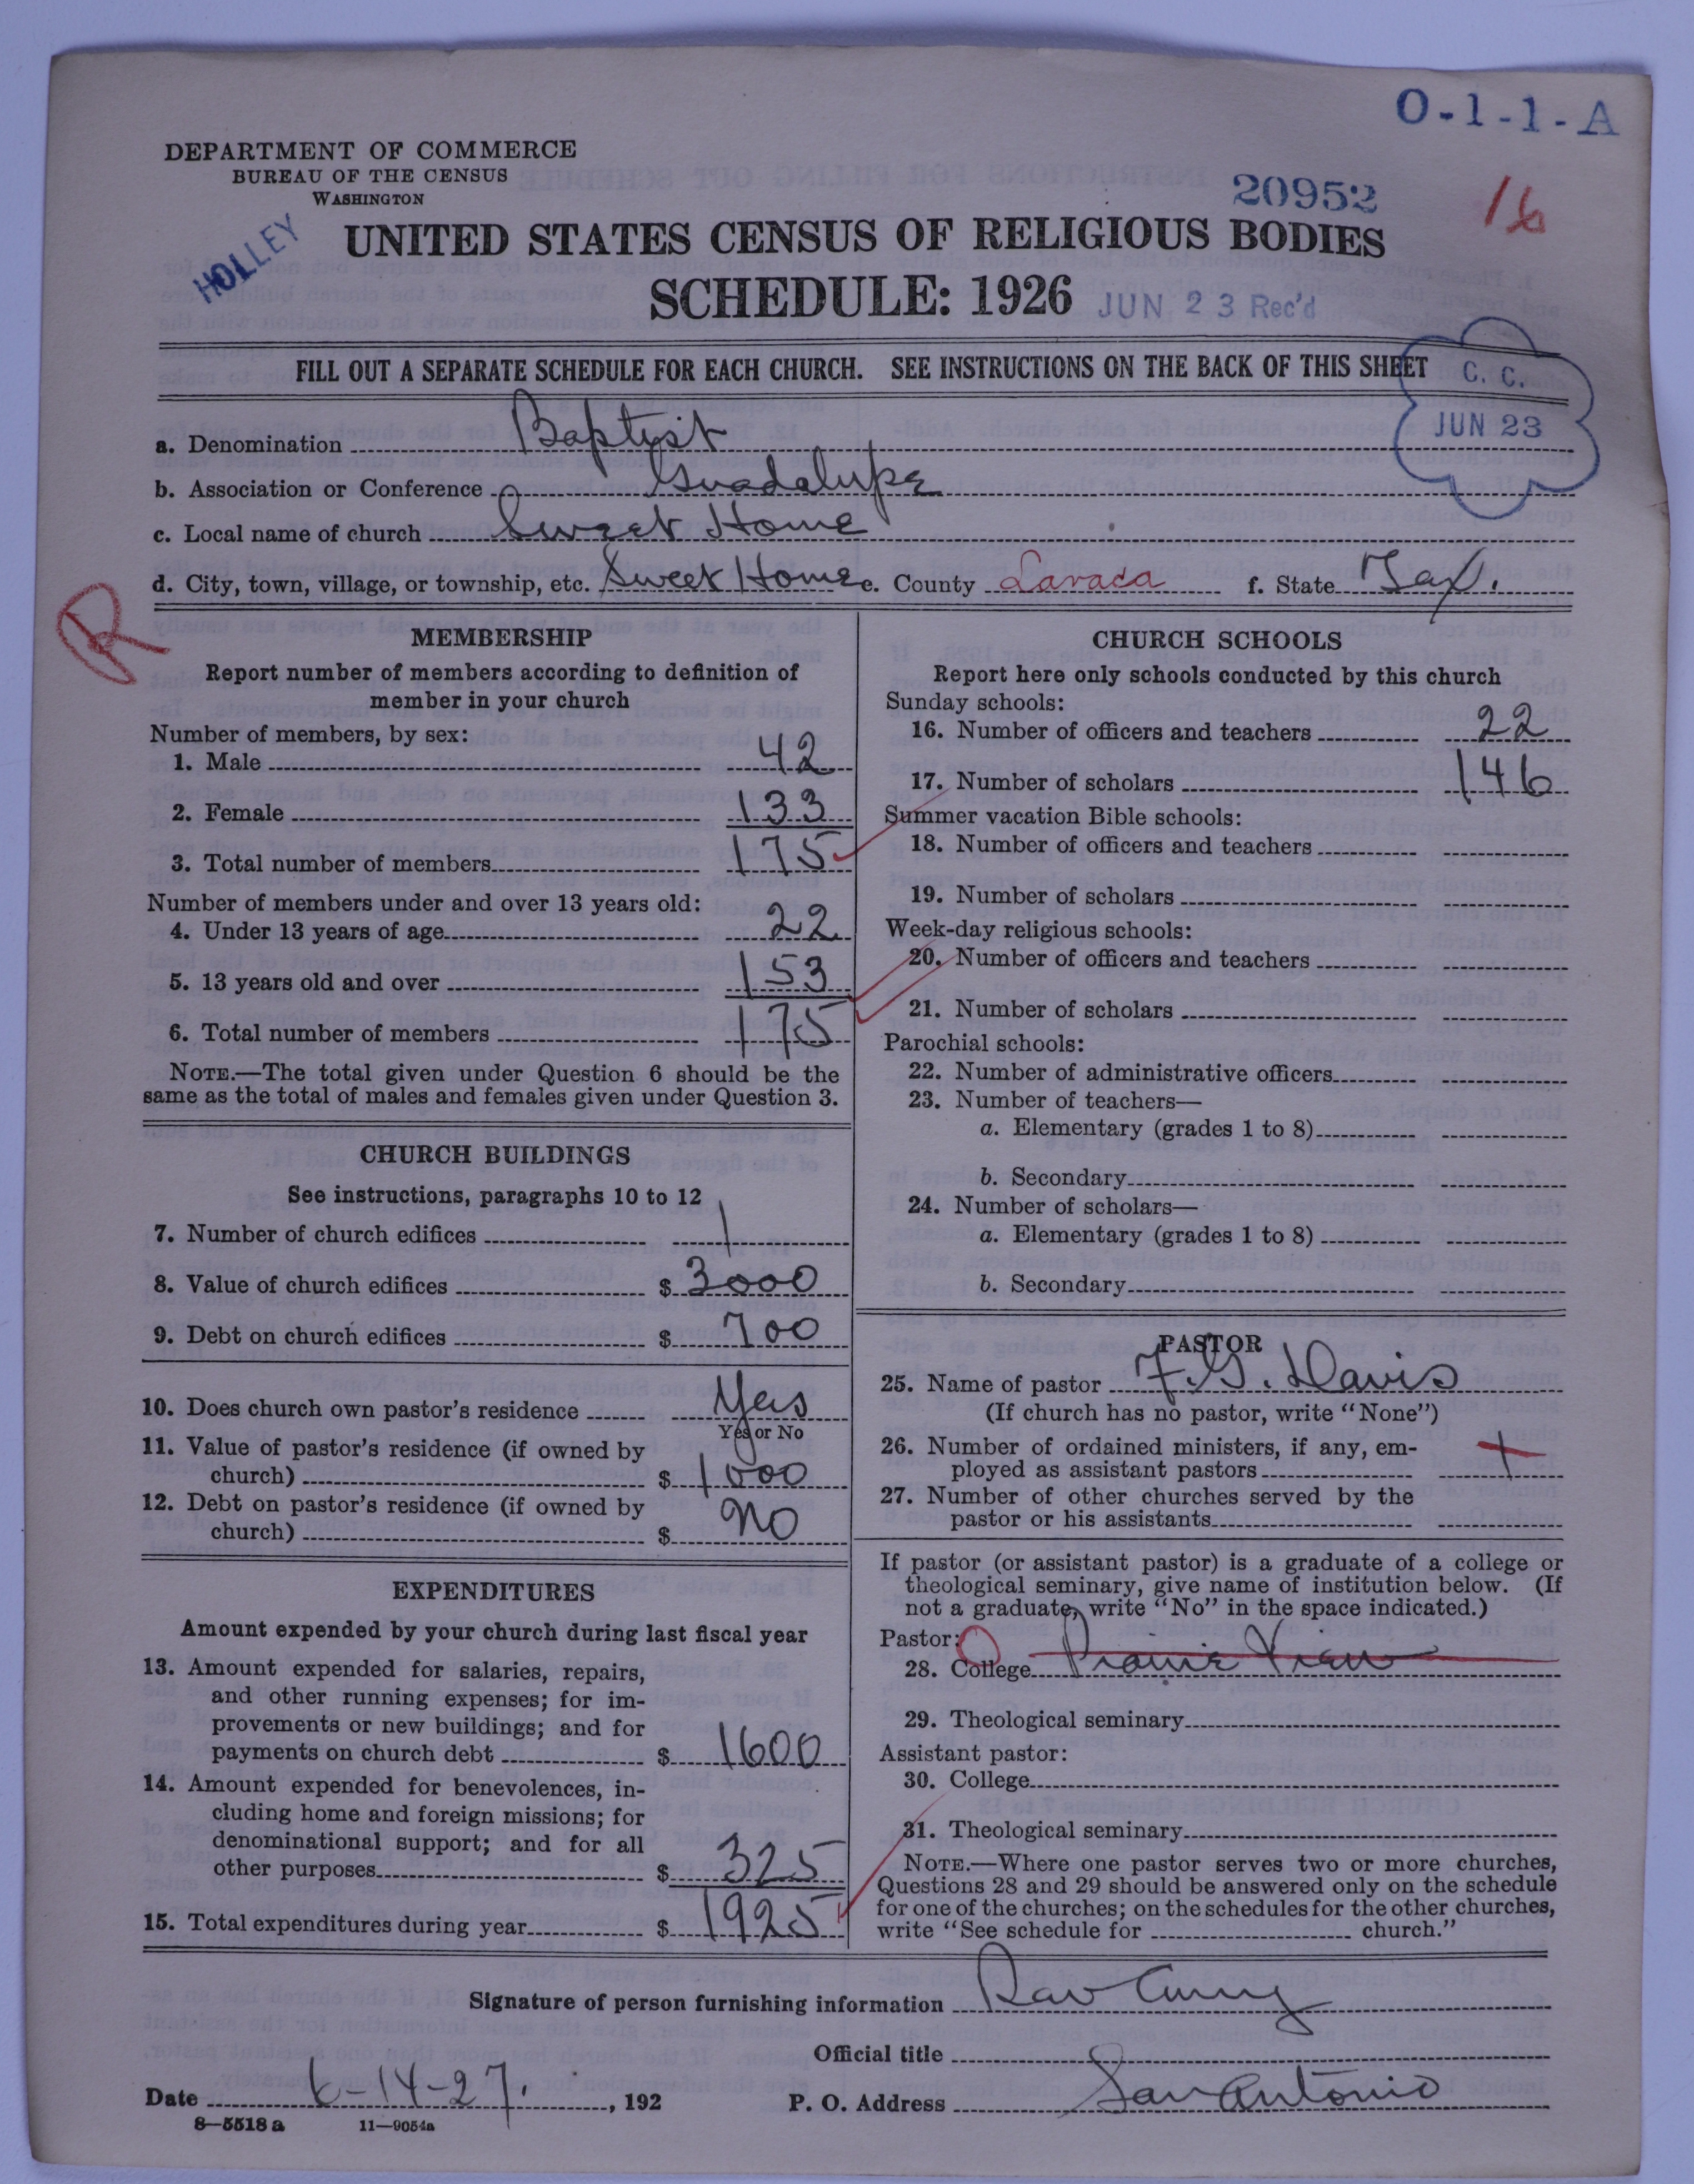 O-1-1-A
DEPARTMENT OF COMMERCE
BUREAU OF THE CENSUS
WASHINGTON
20952
16
HOLLEY
UNITED STATES CENSUS OF RELIGIOUS BODIES
SCHEDULE: 1926
JUN 23 Rec'd
FILL OUT A SEPARATE SCHEDULE FOR EACH CHURCH. SEE INSTRUCTIONS ON THE BACK OF THIS SHEET
C. C.
JUN 23
a. Denomination Baptist
b. Association or Conference Guadalupe
c. Local name of church Sweet Home
d. City, town, village, or township, etc. Sweet Home e. County Lavaca f. State Tex.
R
MEMBERSHIP
Report number of members according to definition of
member in your church
Number of members, by sex:
1. Male 42
2. Female 133
3. Total number of members 175
Number of members under and over 13 years old:
4. Under 13 years of age 22
5. 13 years old and over 153
6. Total number of members 175
NOTE.—The total given under Question 6 should be the
same as the total of males and females given under Question 3.
CHURCH BUILDINGS
See instructions, paragraphs 10 to 12
7. Number of church edifices 1
8. Value of church edifices $ 3000
9. Debt on church edifices $ 700
10. Does church own pastor's residence Yes
Yes or No
11. Value of pastor's residence (if owned by
church) $ 1000
12. Debt on pastor's residence (if owned by
church) $ No
EXPENDITURES
Amount expended by your church during last fiscal year
13. Amount expended for salaries, repairs,
and other running expenses; for im-
provements or new buildings; and for
payments on church debt $ 1600
14. Amount expended for benevolences, in-
cluding home and foreign missions; for
denominational support; and for all
other purposes $ 325
15. Total expenditures during year $ 1925
CHURCH SCHOOLS
Report here only schools conducted by this church
Sunday schools:
16. Number of officers and teachers 22
17. Number of scholars 146
Summer vacation Bible schools:
18. Number of officers and teachers
19. Number of scholars
Week-day religious schools:
20. Number of officers and teachers
21. Number of scholars
Parochial schools:
22. Number of administrative officers
23. Number of teachers—
a. Elementary (grades 1 to 8)
b. Secondary
24. Number of scholars—
a. Elementary (grades 1 to 8)
b. Secondary
PASTOR
25. Name of pastor F. G. Davis
(If church has no pastor, write "None")
26. Number of ordained ministers, if any, em-
ployed as assistant pastors 1
27. Number of other churches served by the
pastor or his assistants
If pastor (or assistant pastor) is a graduate of a college or
theological seminary, give name of institution below. (If
not a graduate, write "No" in the space indicated.)
Pastor:
28. College Prairie View
29. Theological seminary
Assistant pastor:
30. College
31. Theological seminary
NOTE.—Where one pastor serves two or more churches,
Questions 28 and 29 should be answered only on the schedule
for one of the churches; on the schedules for the other churches,
write "See schedule for church."
Signature of person furnishing information
Official title
Date 6-14-27, 192 P. O. Address San Antonio
8—5518 a 11—9054a